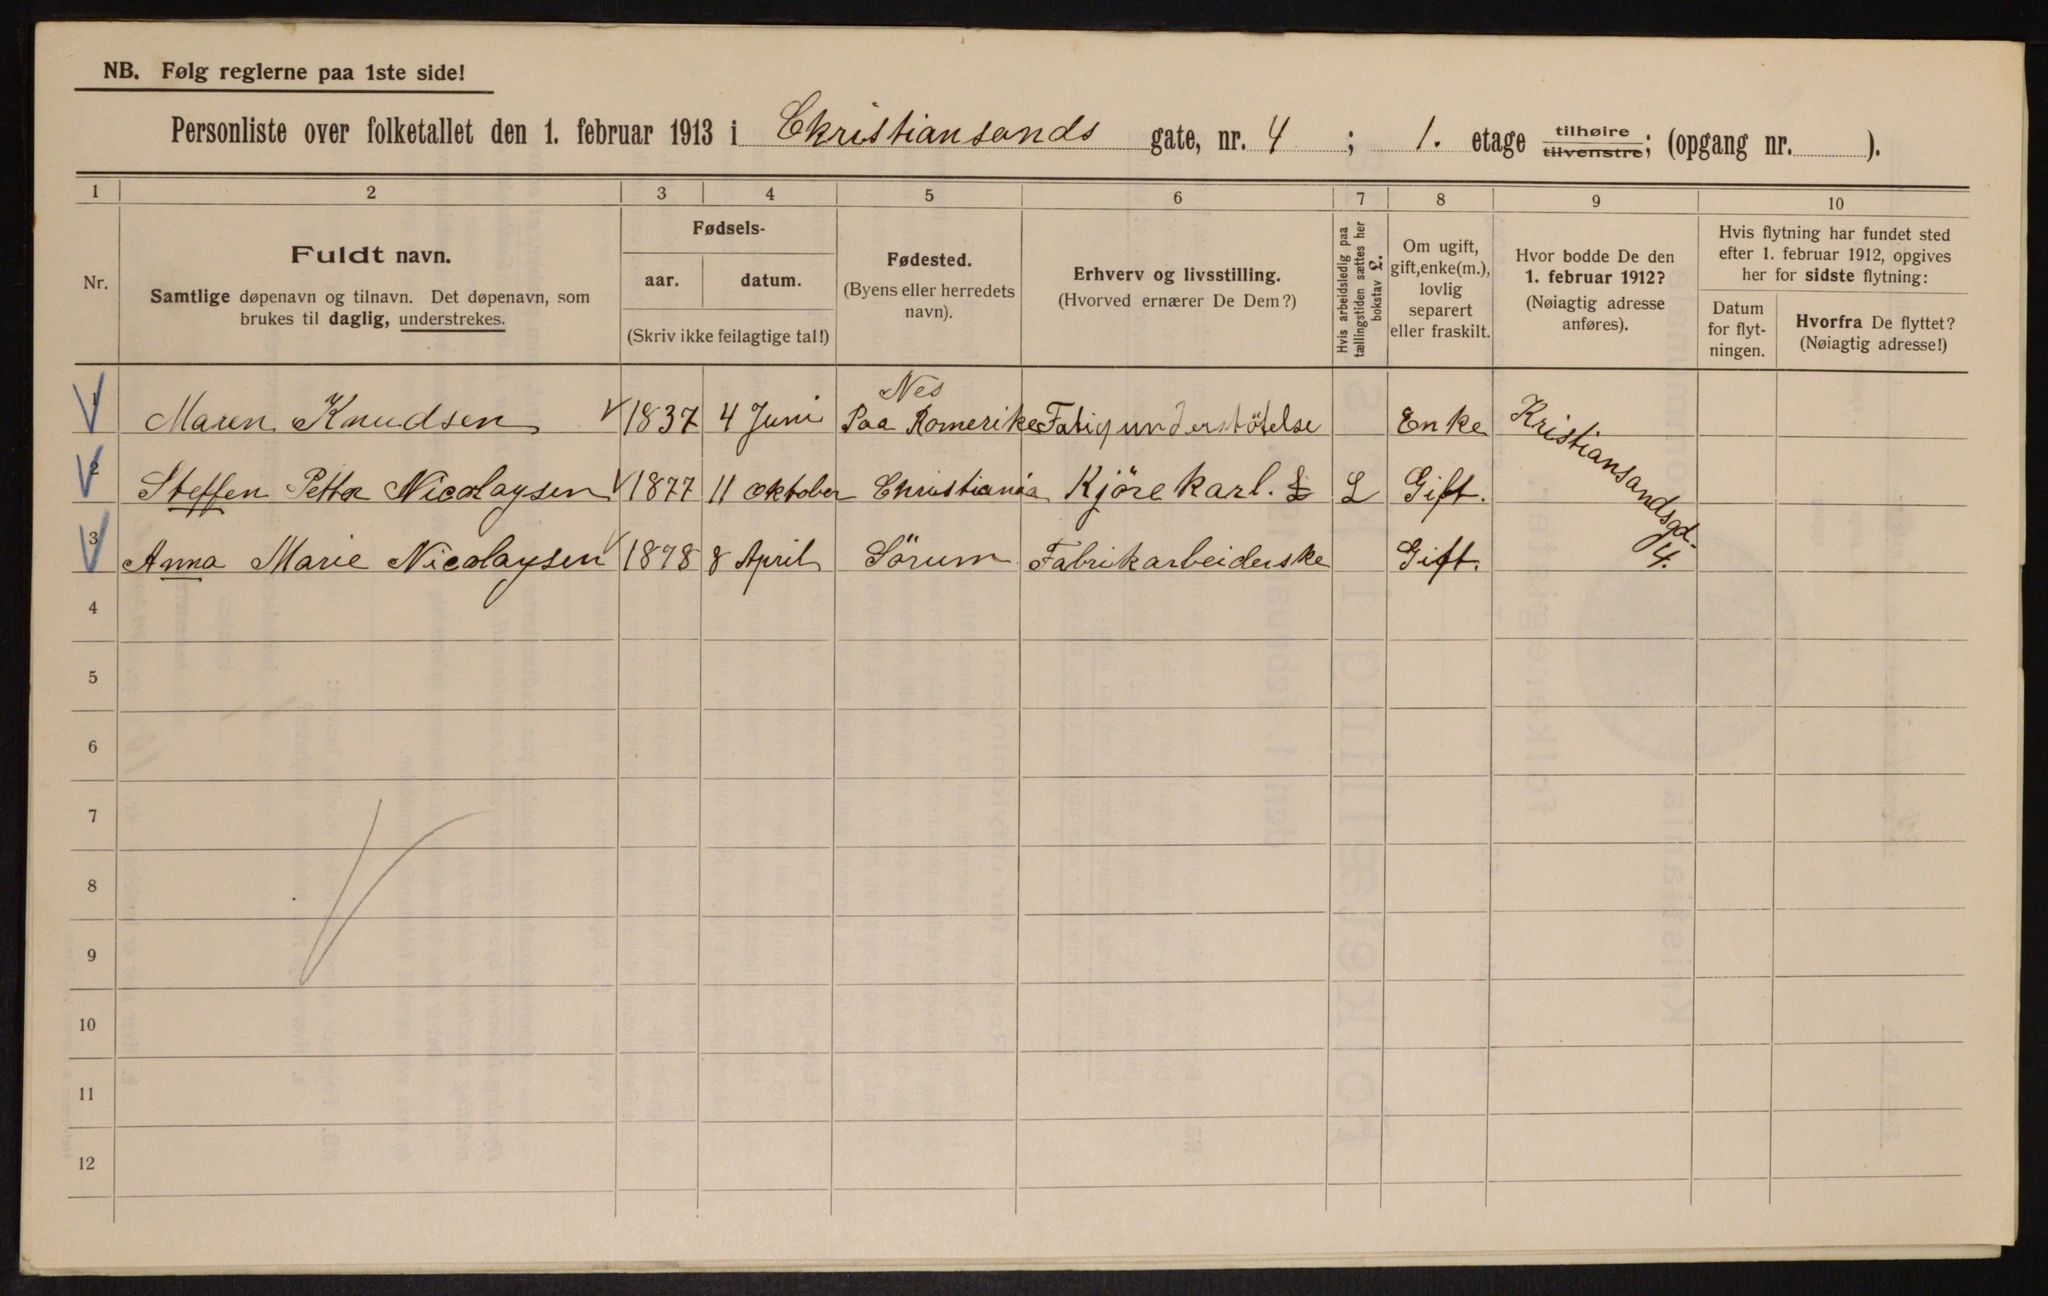 NB. Følg reglerne paa 1ste side!
Personliste over folketallet den 1. februar 1913 i Christiansands gate, nr. 4 ; 1. etage tilhøire tilvenstre; (opgang nr. ).
1 2 3 4 5 6 7 8 9 10
Nr.
Fuldt navn.
Samtlige døpenavn og tilnavn. Det døpenavn, som
brukes til daglig, understrekes.
Fødsels-
aar. datum.
(Skriv ikke feilagtige tal!)
Fødested.
(Byens eller herredets
navn).
Erhverv og livsstilling.
(Hvorved ernærer De Dem?)
Hvis arbeidsledig paa
tællingstiden sættes her
bokstav L.
Om ugift,
gift, enke(m.),
lovlig
separert
eller fraskilt.
Hvor bodde De den
1. februar 1912?
(Nøiagtig adresse
anføres).
Hvis flytning har fundet sted
efter 1. februar 1912, opgives
her for sidste flytning:
Datum
for flyt-
ningen.
Hvorfra De flyttet?
(Nøiagtig adresse!)
Nes
1 Maren Knudsen 1837 4 Juni Paa Romerike Fatigunderstötelse Enke Kristiansandsgd. 4.
2 Steffen Petter Nicolaysen 1877 11 oktober Christiania Kjörekarl. L L Gift.
3 Anna Marie Nicolaysen 1878 8 April Sörum Fabrikarbeiderske Gift.
4
5
6
7
8
9
10
11
12